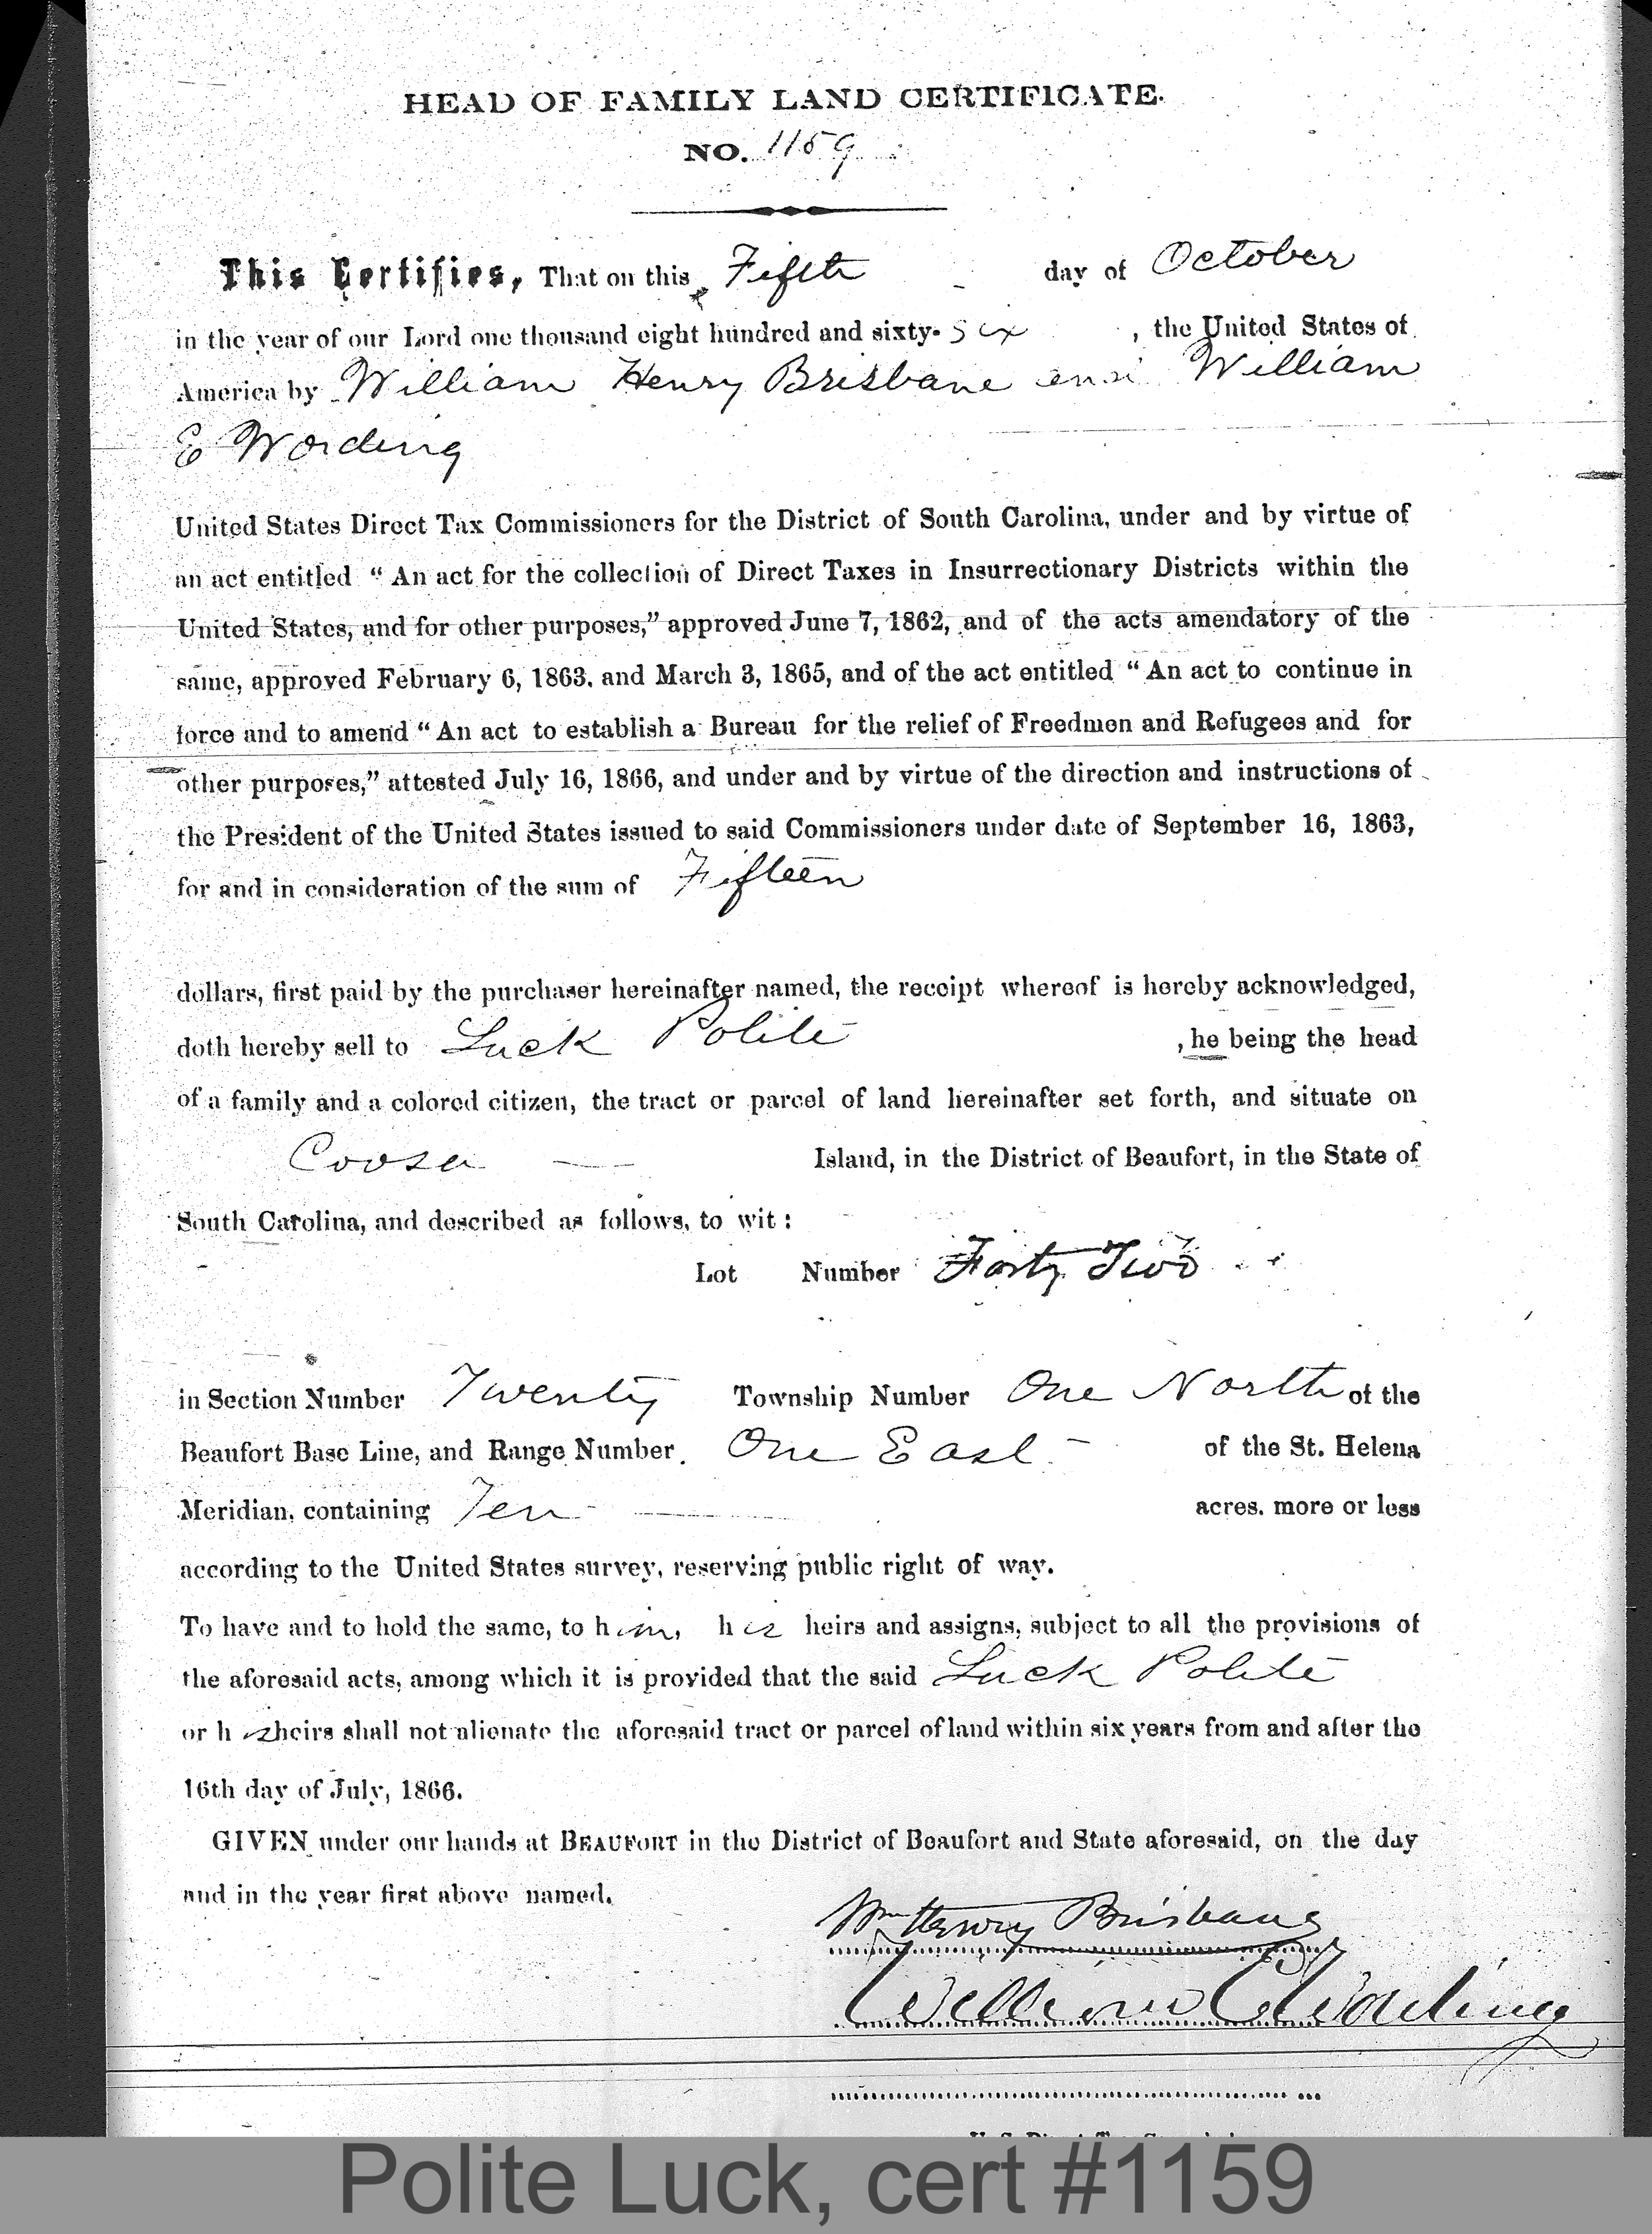 HEAD OF FAMILY LAND CERTIFICATE.
NO. 1159
This Certifies, That on this Fifth day of October
in the year of our Lord one thousand eight hundred and sixty-six, the United States of
America by William Henry Brisbane and William
E Wording
United States Direct Tax Commissioners for the District of South Carolina, under and by virtue of
an act entitled "An act for the collection of Direct Taxes in Insurrectionary Districts within the
United States, and for other purposes," approved June 7, 1862, and of the acts amendatory of the
same, approved February 6, 1863, and March 3, 1865, and of the act entitled "An act to continue in
force and to amend "An act to establish a Bureau for the relief of Freedmen and Refugees and for
other purposes," attested July 16, 1866, and under and by virtue of the direction and instructions of
the President of the United States issued to said Commissioners under date of September 16, 1863,
for and in consideration of the sum of Fifteen
dollars, first paid by the purchaser hereinafter named, the receipt whereof is hereby acknowledged,
doth hereby sell to Luck Polite, he being the head
of a family and a colored citizen, the tract or parcel of land hereinafter set forth, and situate on
Coosa Island, in the District of Beaufort, in the State of
South Carolina, and described as follows, to wit:
Lot Number Forty Two
in Section Number Twenty Township Number One North of the
Beaufort Base Line, and Range Number One East of the St. Helena
Meridian, containing Ten acres, more or less
according to the United States survey, reserving public right of way.
To have and to hold the same, to him, his heirs and assigns, subject to all the provisions of
the aforesaid acts, among which it is provided that the said Luck Polite
or his heirs shall not alienate the aforesaid tract or parcel of land within six years from and after the
16th day of July, 1866.
GIVEN under our hands at BEAUFORT in the District of Beaufort and State aforesaid, on the day
and in the year first above named.
Wm Henry Brisbane
William E Wording
Polite Luck, cert #1159